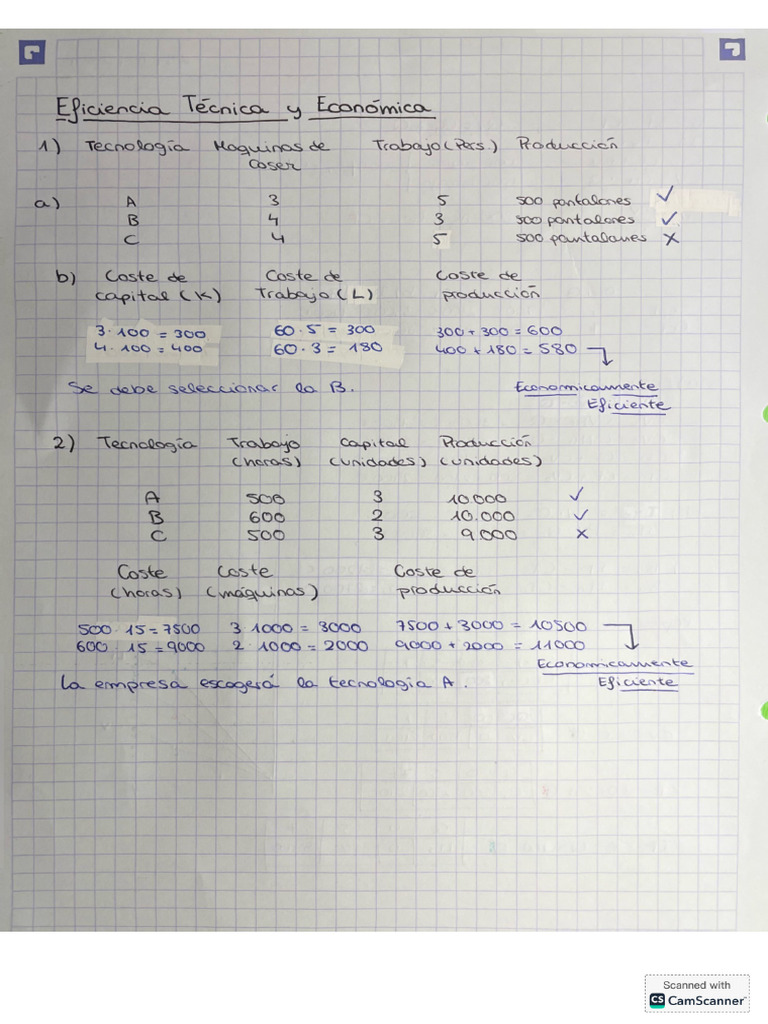 Eficiencia Técnica y Económica
1) Tecnología Maquinas de Coser Trabajo (Pers.) Producción
a) A 3 5 500 pantalones ✓
B 4 3 500 pantalones ✓
C 4 5 500 pantalones ✗
b) Coste de capital (K) Coste de Trabajo (L) Coste de producción
3·100 = 300 60·5 = 300 300 + 300 = 600
4·100 = 400 60·3 = 180 400 + 180 = 580
Se debe seleccionar la B. Economicamente
Eficiente
2) Tecnología Trabajo Capital Producción
(horas) (unidades) (unidades)
A 500 3 10000 ✓
B 600 2 10.000 ✓
C 500 3 9.000 ✗
Coste Coste Coste de
(horas) (máquinas) producción
500·15 = 7500 3·1000 = 3000 7500 + 3000 = 10500
600·15 = 9000 2·1000 = 2000 9000 + 2000 = 11000
Economicamente
La empresa escogerá la tecnología A. Eficiente
Scanned with
CS CamScanner